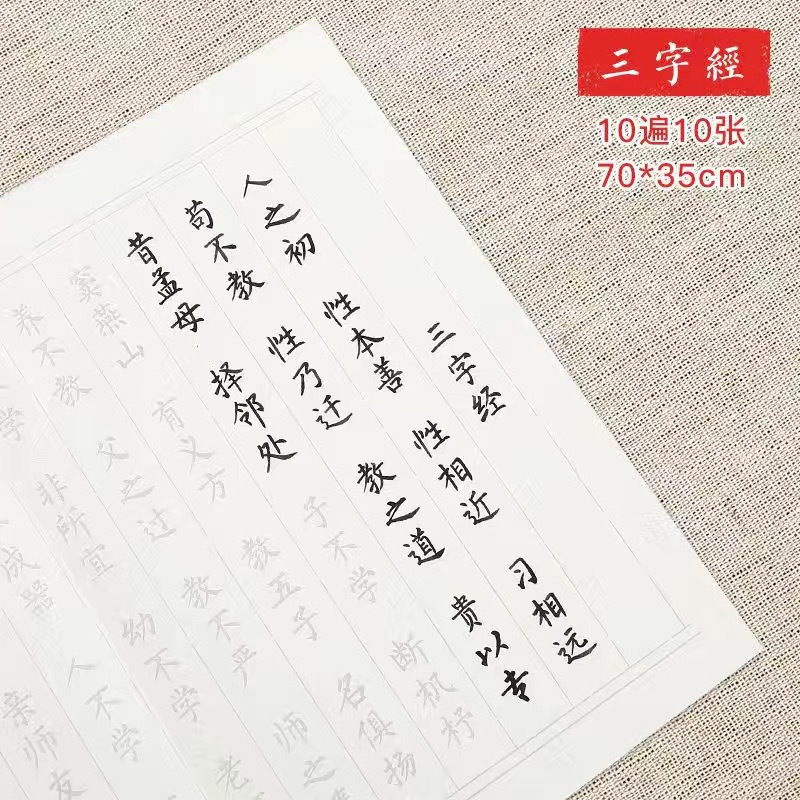 三字經
10遍10张
70*35cm
三字经
人之初 性本善 性相近 习相远
苟不教 性乃迁 教之道 贵以专
昔孟母 择邻处 子不学 断机杼
窦燕山 有义方 教五子 名俱扬
养不教 父之过 教不严 师之
学 非所宜 幼不学 老
成器 人不学
亲师友